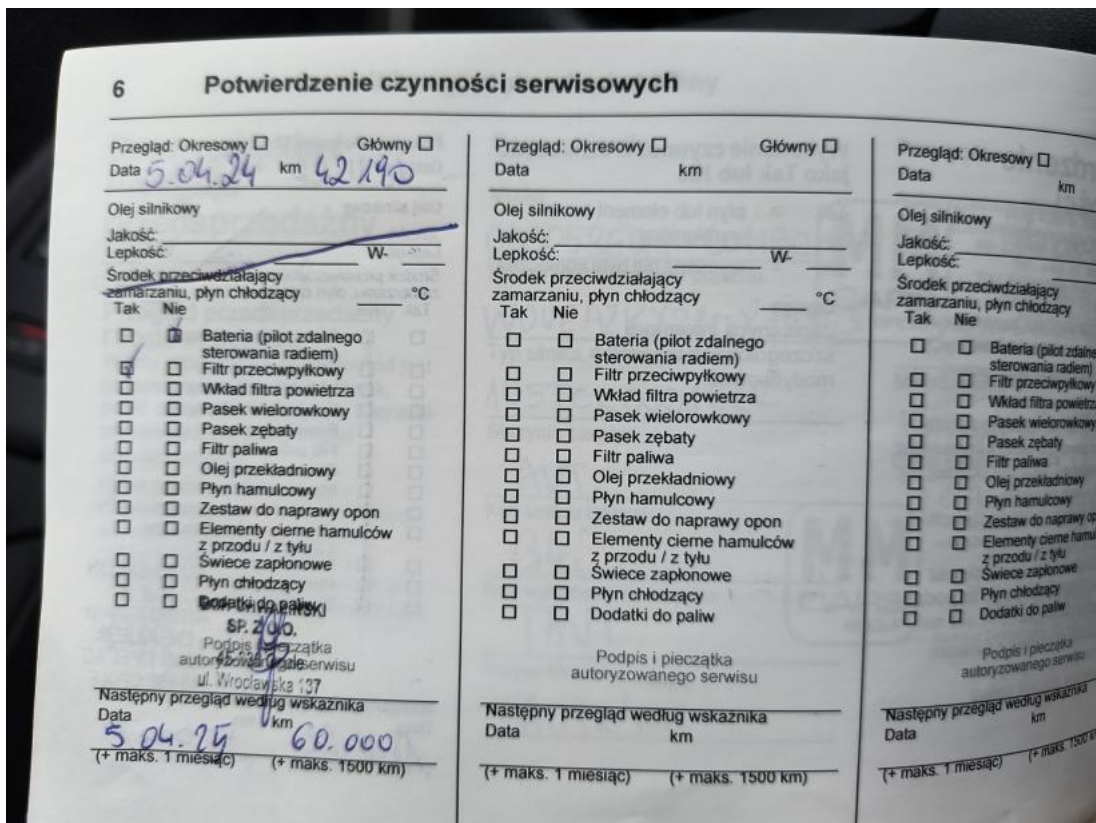 6 Potwierdzenie czynności serwisowych
Przegląd: Okresowy ☐ Główny ☐
Data 5.04.24 km 42190
Olej silnikowy
Jakość:
Lepkość: W-
Środek przeciwdziałający
zamarzaniu, płyn chłodzący °C
Tak Nie
Bateria (pilot zdalnego
sterowania radiem)
Filtr przeciwpyłkowy
Wkład filtra powietrza
Pasek wielorowkowy
Pasek zębaty
Filtr paliwa
Olej przekładniowy
Płyn hamulcowy
Zestaw do naprawy opon
Elementy cierne hamulców
z przodu / z tyłu
Świece zapłonowe
Płyn chłodzący
Dodatki do paliw
SP. Z O.O.
Podpis i pieczątka
autoryzowanego serwisu
ul. Wrocławska 137
Następny przegląd według wskaźnika
Data km
5 04. 25 60.000
(+ maks. 1 miesiąc) (+ maks. 1500 km)
Przegląd: Okresowy ☐ Główny ☐
Data km
Olej silnikowy
Jakość:
Lepkość: W-
Środek przeciwdziałający
zamarzaniu, płyn chłodzący °C
Tak Nie
Bateria (pilot zdalnego
sterowania radiem)
Filtr przeciwpyłkowy
Wkład filtra powietrza
Pasek wielorowkowy
Pasek zębaty
Filtr paliwa
Olej przekładniowy
Płyn hamulcowy
Zestaw do naprawy opon
Elementy cierne hamulców
z przodu / z tyłu
Świece zapłonowe
Płyn chłodzący
Dodatki do paliw
Podpis i pieczątka
autoryzowanego serwisu
Następny przegląd według wskaźnika
Data km
(+ maks. 1 miesiąc) (+ maks. 1500 km)
Przegląd: Okresowy ☐
Data km
Olej silnikowy
Jakość:
Lepkość:
Środek przeciwdziałający
zamarzaniu, płyn chłodzący
Tak Nie
Bateria (pilot zdalne
sterowania radiem)
Filtr przeciwpyłkowy
Wkład filtra powietrza
Pasek wielorowkowy
Pasek zębaty
Filtr paliwa
Olej przekładniowy
Płyn hamulcowy
Zestaw do naprawy op
Elementy cierne hamul
z przodu / z tyłu
Świece zapłonowe
Płyn chłodzący
Dodatki do paliw
Podpis i pieczątka
autoryzowanego serwisu
Następny przegląd według wskaźnika
Data km
(+ maks. 1 miesiąc) (+ maks. 1500 k